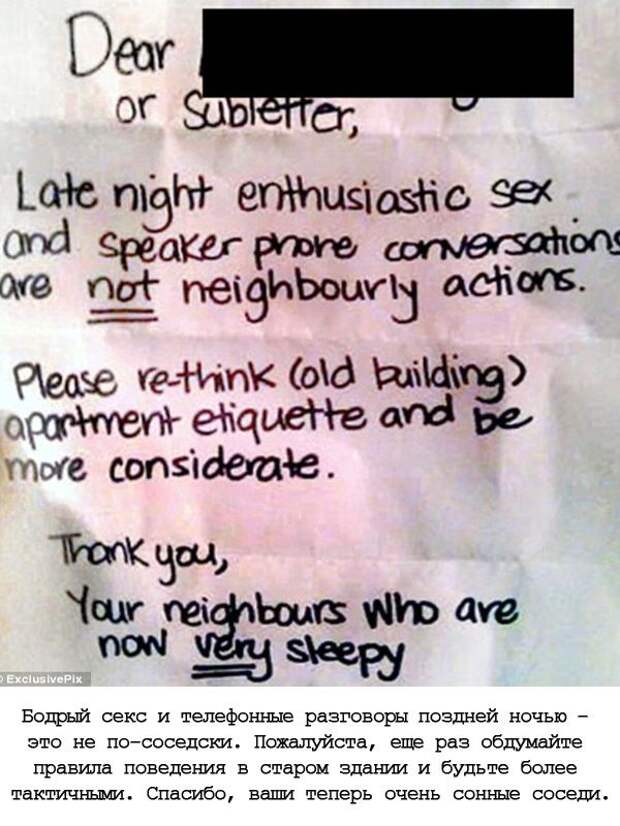 Dear
or Subletter,
Late night enthusiastic sex
and speaker phone conversations
are not neighbourly actions.
Please re-think (old building)
apartment etiquette and be
more considerate.
Thank you,
Your neighbours who are
now very sleepy
© ExclusivePix
Бодрый секс и телефонные разговоры поздней ночью –
это не по-соседски. Пожалуйста, еще раз обдумайте
правила поведения в старом здании и будьте более
тактичными. Спасибо, ваши теперь очень сонные соседи.